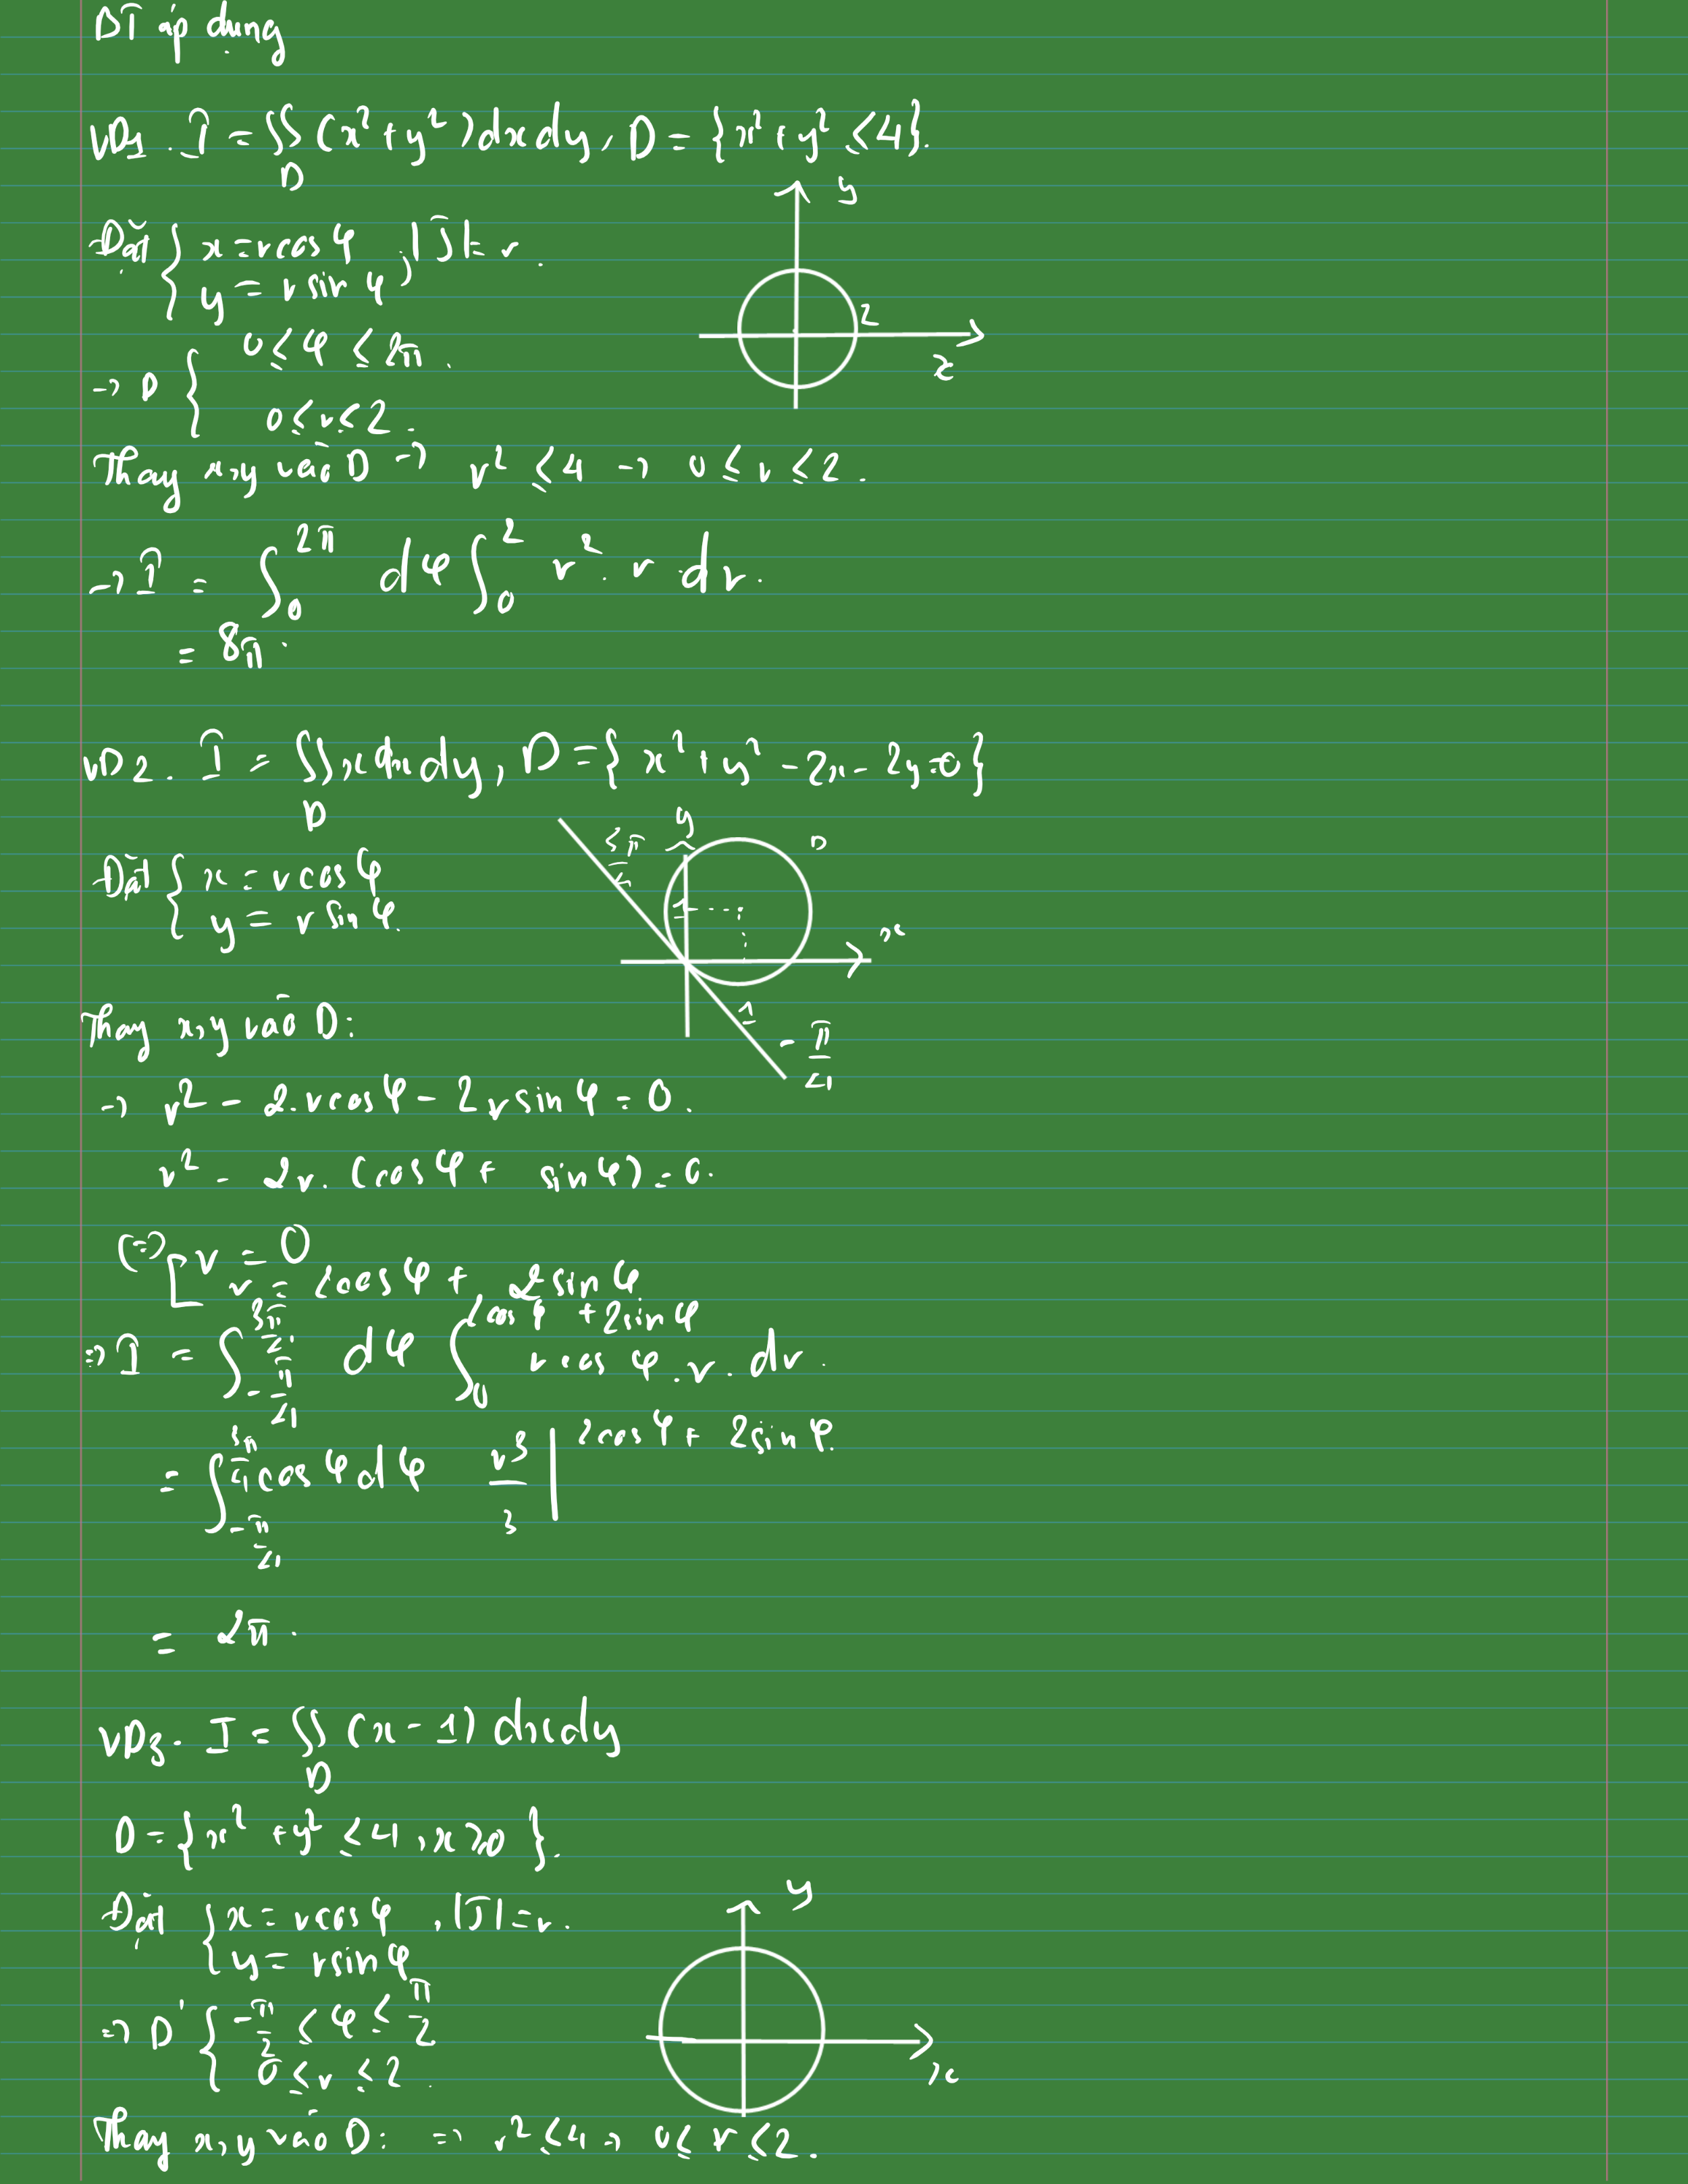 BT áp dụng
VD1. I = ∬_D (x² + y²) dxdy, D = {x² + y² ≤ 4}.
y
Đặt { x = rcosφ, |J| = r.
y = r sin φ
2
x
→ D { 0 ≤ φ ≤ 2π.
0 ≤ r ≤ 2.
Thay x,y vào D → r² ≤ 4 → 0 ≤ r ≤ 2.
→ I = ∫_0^{2π} dφ ∫_0^2 r². r dr.
= 8π.
VD2. I = ∬_D x dx dy, D = { x² + y² - 2x - 2y = 0 }
3π/4 y D
Đặt { x = rcosφ
y = r sinφ.
1
x
1
-π/4
Thay x,y vào D:
→ r² - 2.rcosφ - 2 r sinφ = 0.
r² - 2r. (cosφ + sinφ) = 0.
(=) [ r = 0
r = 2cosφ + 2sinφ
=> I = ∫_{-π/4}^{3π/4} dφ ∫_0^{2cosφ + 2sinφ} r cosφ . r. dr.
= ∫_{-π/4}^{3π/4} cosφ dφ r³/3 |^{2cosφ + 2sinφ.}
= 2π.
VD3. I = ∬_D (x - 1) dxdy
D = {x² + y² ≤ 4, x ≥ 0}.
Đặt { x = rcosφ, |J| = r.
y = rsinφ
y
=> D' { -π/2 ≤ φ ≤ π/2
0 ≤ r ≤ 2.
x
Thay x,y vào D: => r² ≤ 4 → 0 ≤ r ≤ 2.